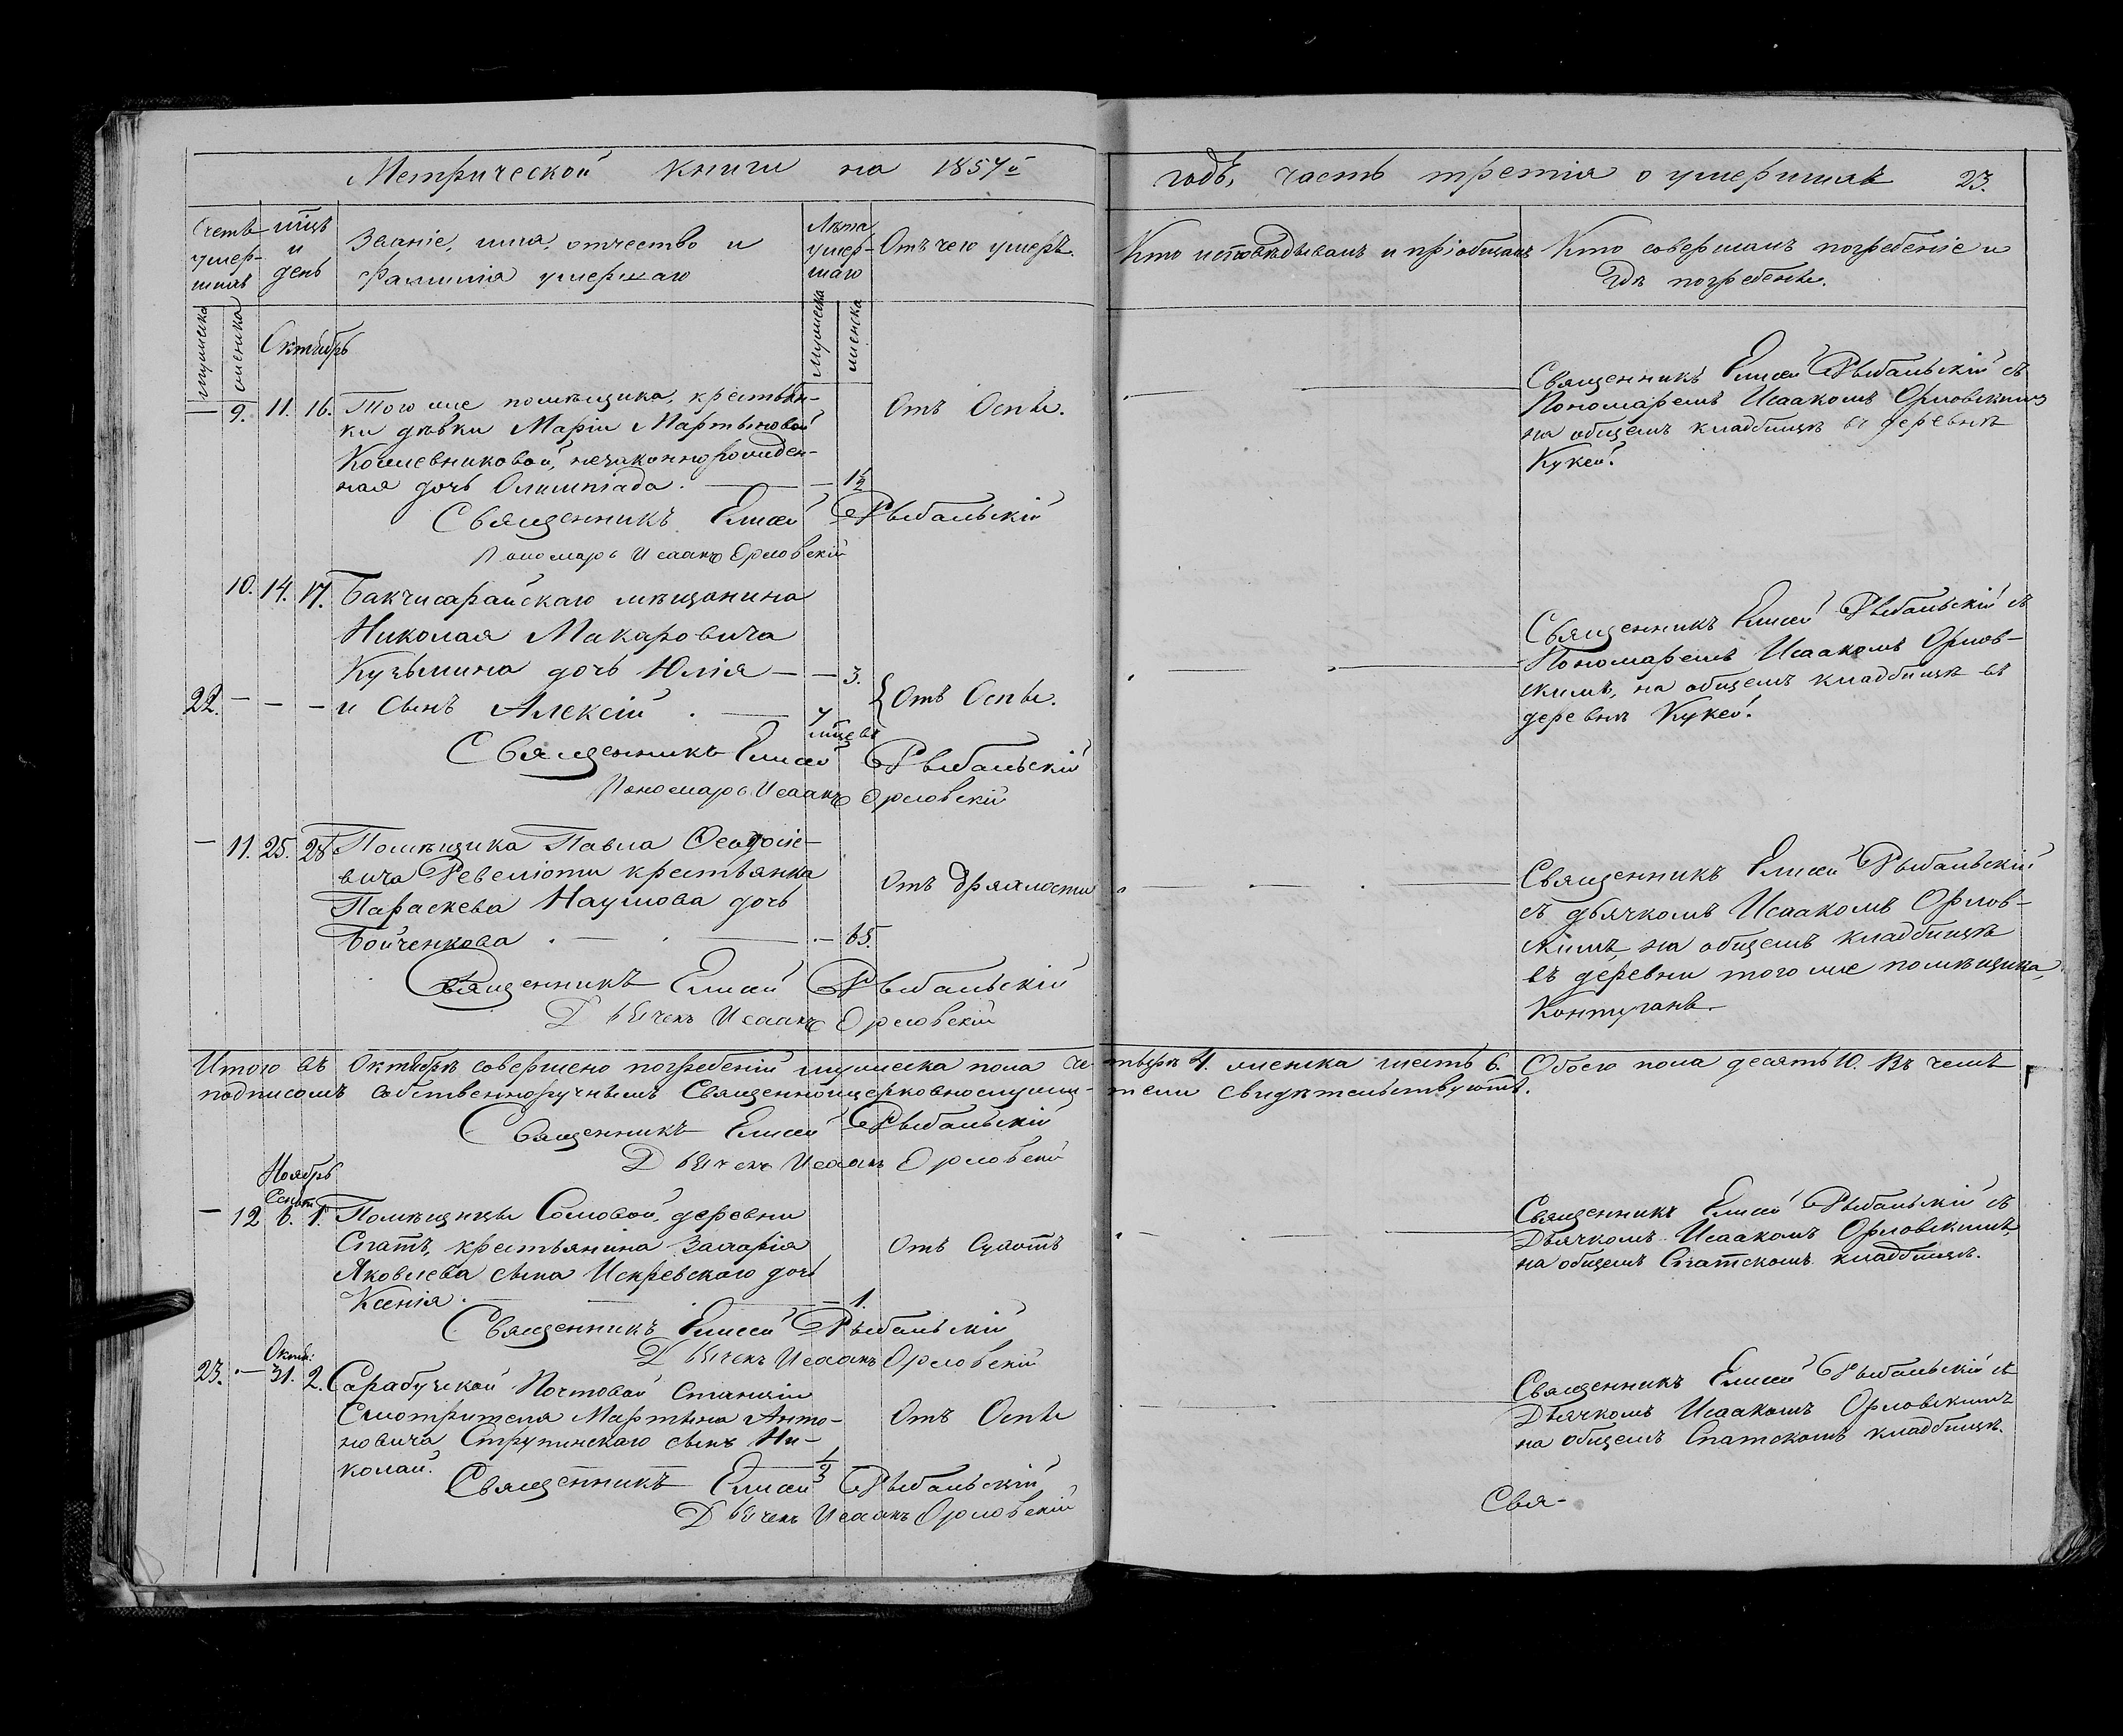 Метрической книги на 1857й годъ, часть третія о умершихъ 23.
Счетъ умер-шихъ
мцъ и день
Званіе, имя, отчество и фамилія умершаго
Лѣта умер-шаго
Отъ чего умеръ.
Кто исповѣдывалъ и пріобщалъ
Кто совершалъ погребеніе и гдѣ погребены.
мужеска
женска
Октябрь
мужеска
женска
— 9. 11. 16. Того же помѣщика, крестьян-
ки дѣвки Маріи Мартыновой
Кожевниковой, незаконнорожден-
ная дочь Олимпіада. — 1½
Отъ Оспы.
Священникъ Елисей Рыбальскій съ
Пономаремъ Исаакомъ Орловскимъ
на общемъ кладбищѣ въ деревнѣ
Кукей.
Священникъ Елисей Рыбальскій
Пономарь Исаакъ Орловскій
10. 14. 17. Бакчисарайскаго мѣщанина
Николая Макаровича
Кузьмина дочь Юлія — — 3.
22. — — — и сынъ Алексій. — 7 мцевъ
Отъ Оспы.
Священникъ Елисей Рыбальскій съ
Пономаремъ Исаакомъ Орлов-
скимъ, на общемъ кладбищѣ въ
деревнѣ Кукей.
Священникъ Елисей Рыбальскій
Пономарь Исаакъ Орловскій
— 11. 25. 28 Помѣщика Павла Ѳеодосіе-
вича Ревеліоти крестьянка
Параскева Наумова дочь
Бойченкова . — . — . — 65.
Отъ дряхлости
Священникъ Елисей Рыбальскій
съ дьячкомъ Исаакомъ Орлов-
скимъ, на общемъ кладбищѣ
въ деревни того же помѣщика,
Контуганъ.
Священникъ Елисей Рыбальскій
Дьячекъ Исаакъ Орловскій
Итого въ Октябрѣ совершено погребеній мужеска пола че-тыре 4. женска шесть 6. Обоего пола десять 10. Въ чемъ
подписомъ собственноручнымъ Священноицерковнослужи-тели свидѣтельствуютъ.
Священникъ Елисей Рыбальскій
Дьячекъ Исаакъ Орловскій
Ноябрь
— 12 6. 1. Помѣщицы Сомовой, деревни
Спатъ, крестьянина Захарія
Яковлева сына Искревскаго дочь
Ксенія. — 1.
Священникъ Елисей Рыбальскій съ
Дьячкомъ Исаакомъ Орловскимъ,
на общемъ Спатскомъ кладбищѣ.
Священникъ Елисей Рыбальскій
Дьячекъ Исаакъ Орловскій
Октяб:
23. — 31. 2. Сарабузской Почтовой Станціи
Смотрителя Мартына Анто-
новича Струпинскаго сынъ Ни-
колай.
Отъ Оспы
Священникъ Елисей Рыбальскій съ
Дьячкомъ Исаакомъ Орловскимъ
на общемъ Спатскомъ кладбищѣ.
Священникъ Елисей Рыбальскій
Дьячекъ Исаакъ Орловскій
Свя-